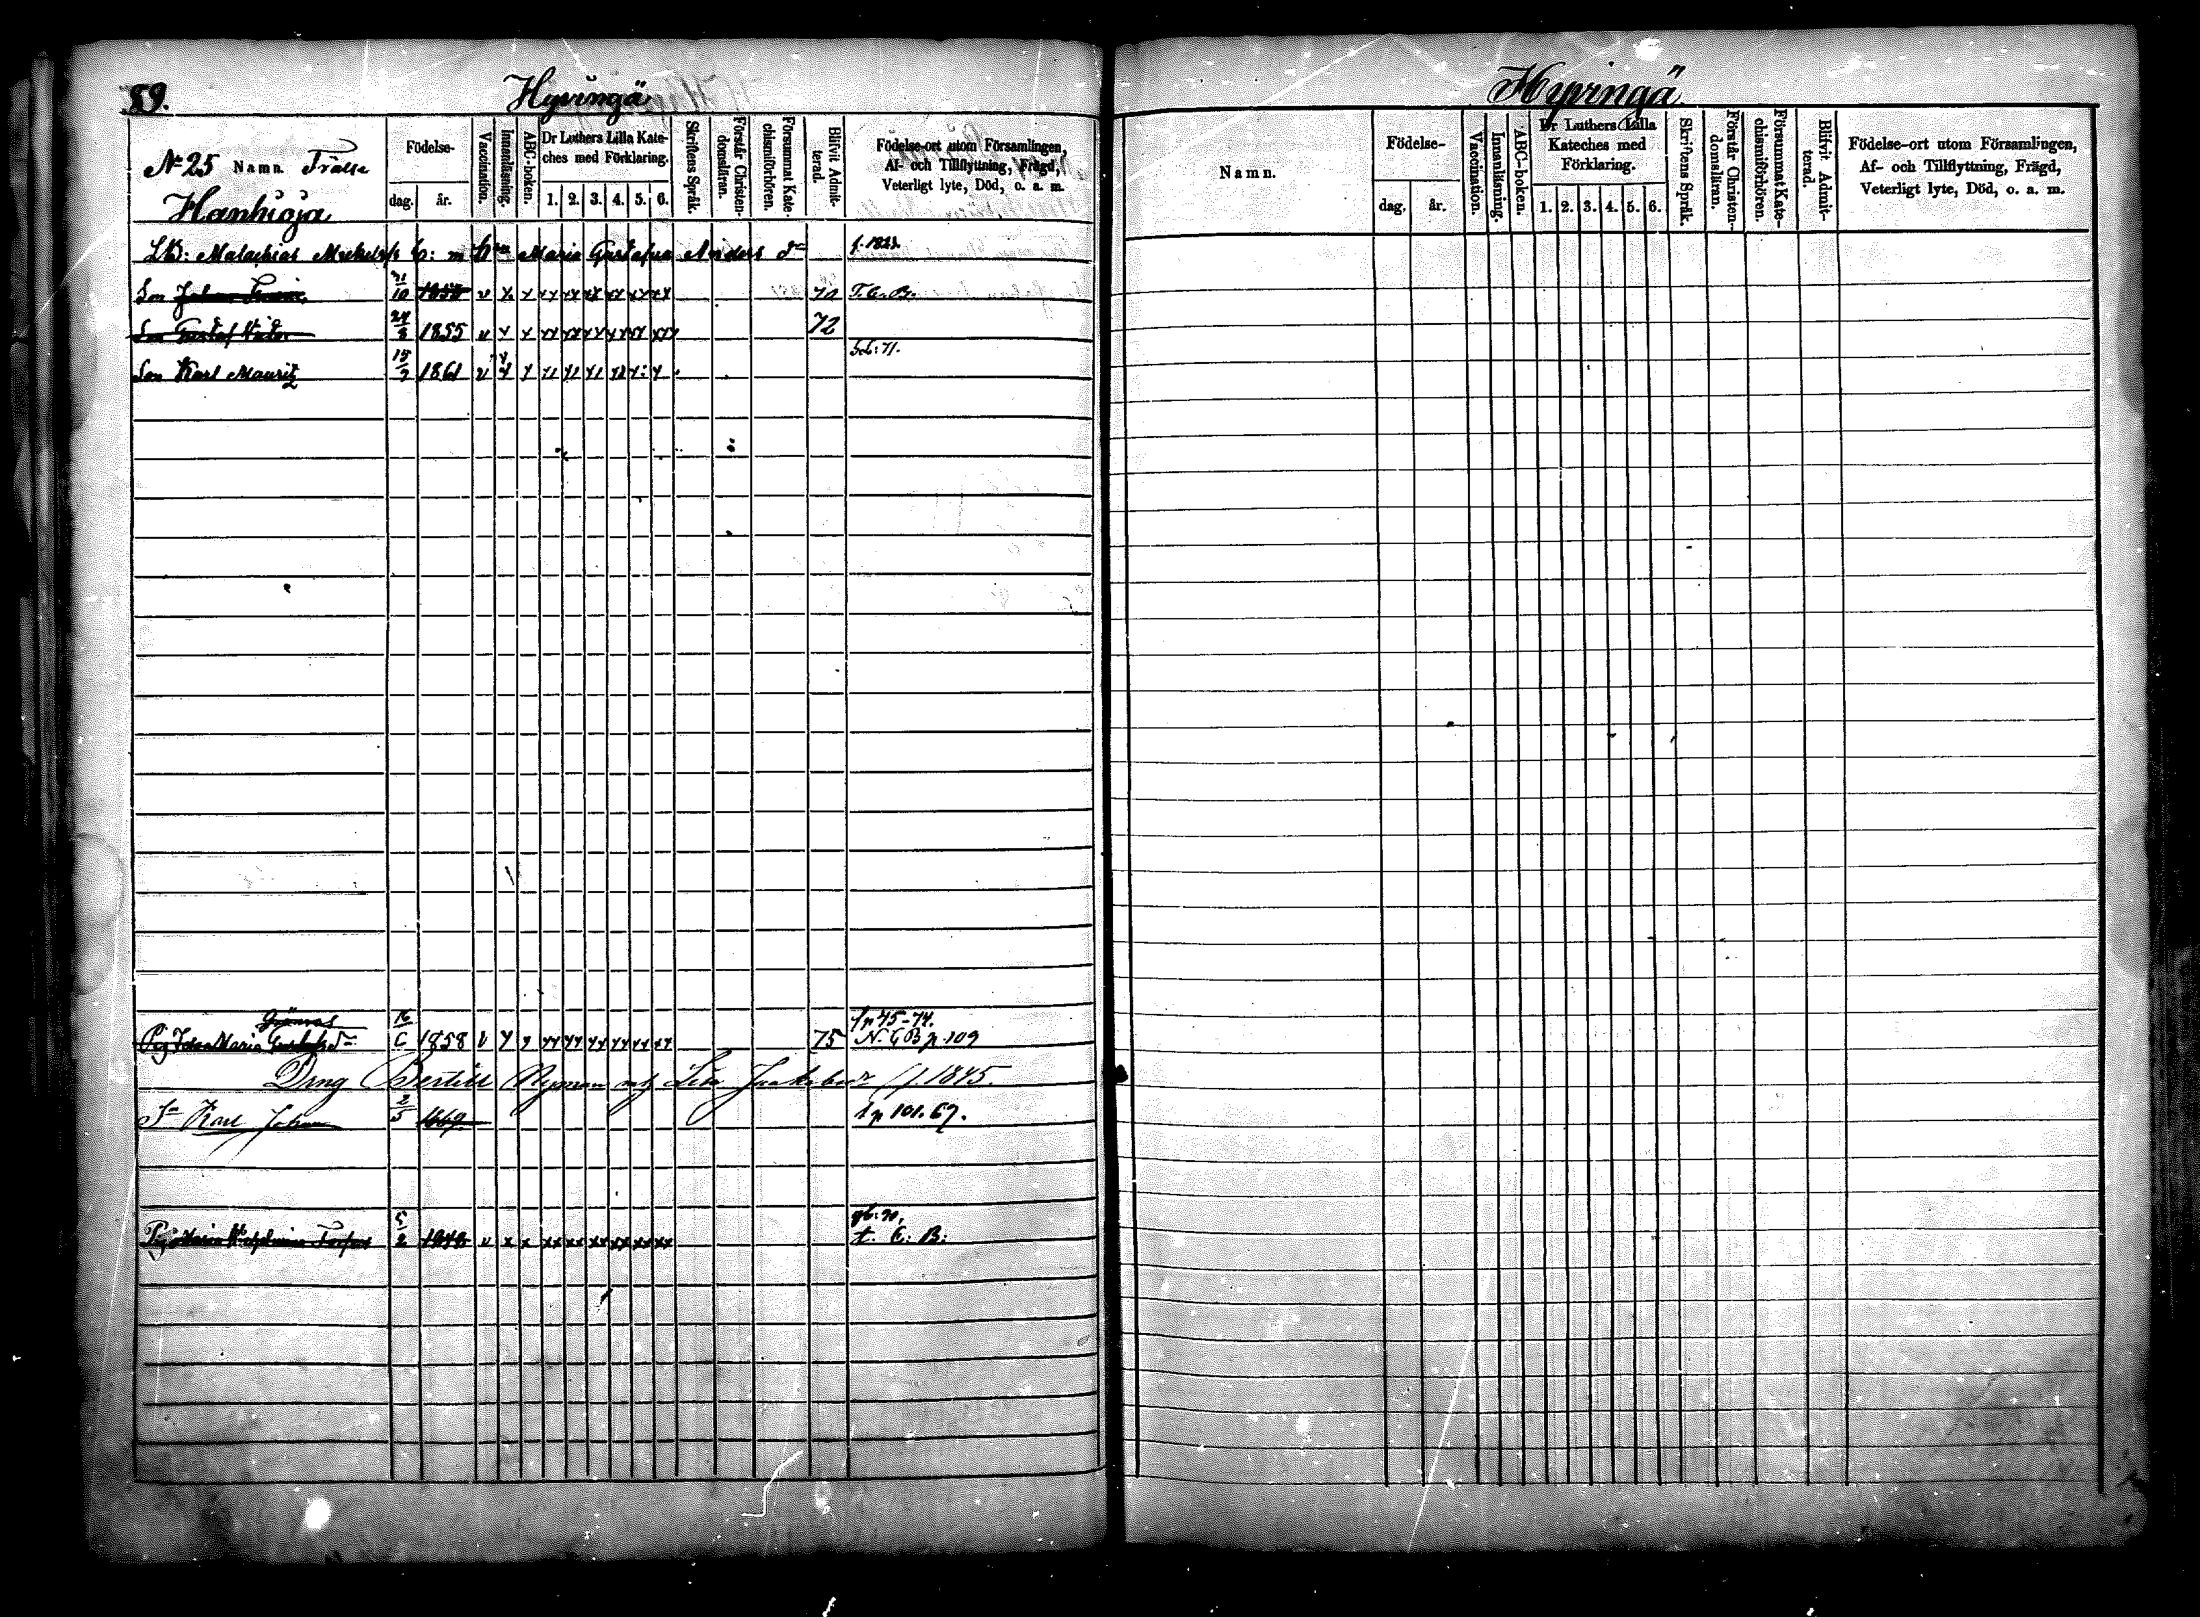 89.
Hyvingä
Hyvingä
N:o 25 Namn. Frälse
Hanhioja
Födelse-
dag. år.
Vaccination.
Innanläsning.
ABC-boken.
Dr Luthers Lilla Kate-
ches med Förklaring.
1. 2. 3. 4. 5. 6.
Skriftens Språk.
Förstår Christen-
domsläran.
Försummat Kate-
chismiförhören.
Blifvit Admit-
terad.
Födelse-ort utom Församlingen,
Af- och Tillflyttning, Frägd,
Veterligt lyte, Död, o. a. m.
Maria Gustafva Anders d:r f. 1823.
Son Johan 10 v x x 70 T. C. B.
Son Gustaf Victor 24/8 1855 v x x 72
Son Karl Mauritz 15/7 1861 v
Pig Ida Maria Gustafsd:r 16/6 1858 v 75 1 p 75-74.
N. C B p. 109
Dreng Bertill Nyman f. 1845.
S:n Karl Johan 2/5 1869 1 p 101. 69.
Pig Maria 5/2 v x x xx xx xx xx xx xx t. C. B.
Namn.
Födelse-
dag. år.
Vaccination.
Innanläsning.
ABC-boken.
Dr Luthers Lilla
Kateches med
Förklaring.
1. 2. 3. 4. 5. 6.
Skriftens Språk.
Förstår Christen-
domsläran.
Försummat Kate-
chismiförhören.
Blifvit Admit-
terad.
Födelse-ort utom Församlingen,
Af- och Tillflyttning, Frägd,
Veterligt lyte, Död, o. a. m.